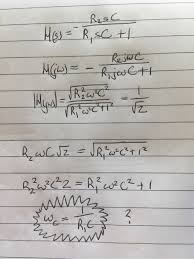 H(s) = - R₂sC / (R₁sC + 1)
H(jω) = - R₂jωC / (R₁jωC + 1)
|H(jω)| = √(R₂²ω²C²) / √(R₁²ω²C² + 1²) = 1 / √2
R₂ωC√2 = √(R₁²ω²C² + 1²)
R₂²ω²C²2 = R₁²ω²C² + 1
ω_c = 1 / (R₁C) ?